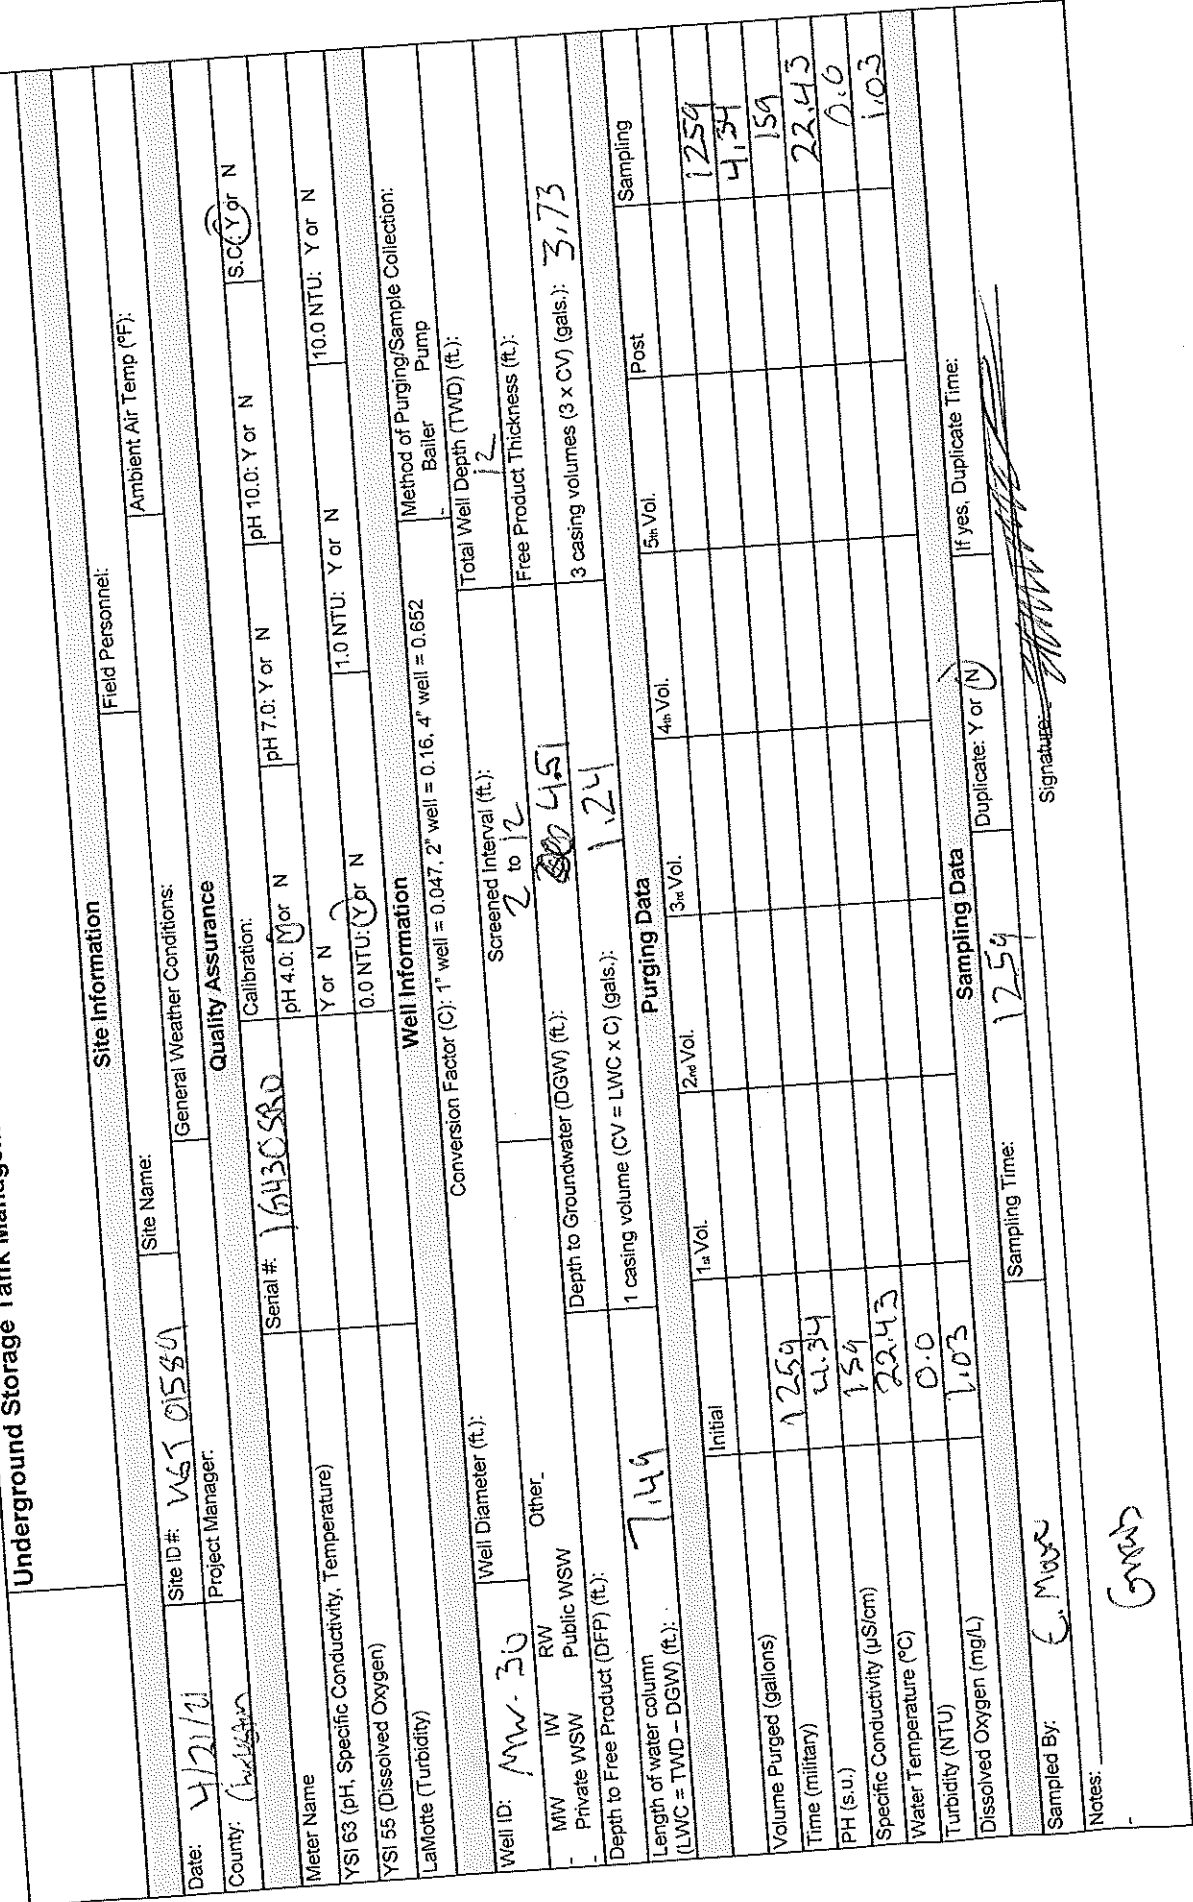 Underground Storage Tank
Site Information
Field Personnel:
Date: 4/21/21 Site ID #: UGT 01584 Site Name:
County: Charleston Project Manager: General Weather Conditions: Ambient Air Temp (ºF):
Quality Assurance
Meter Name Serial #: Calibration:
YSI 63 (pH, Specific Conductivity, Temperature) pH 4.0: Y or N pH 7.0: Y or N pH 10.0: Y or N S.C.: Y or N
YSI 55 (Dissolved Oxygen) Y or N
LaMotte (Turbidity) 0.0 NTU: Y or N 1.0 NTU: Y or N 10.0 NTU: Y or N
Well Information
Conversion Factor (C): 1" well = 0.047, 2" well = 0.16, 4" well = 0.652
Method of Purging/Sample Collection:
- Bailer Pump
Well ID: MW-30 Well Diameter (ft.): Screened Interval (ft.): 2 to 12 Total Well Depth (TWD) (ft.): 12
- MW IW RW Other_
- Private WSW Public WSW
Depth to Free Product (DFP) (ft.): Depth to Groundwater (DGW) (ft.): 4.51 Free Product Thickness (ft.):
Length of water column 7.49
(LWC = TWD – DGW) (ft.):
1 casing volume (CV = LWC x C) (gals.): 1.24 3 casing volumes (3 x CV) (gals.): 3.73
Purging Data
Initial 1st Vol. 2nd Vol. 3rd Vol. 4th Vol. 5th Vol. Post Sampling
Volume Purged (gallons)
Time (military) 1259 1259
PH (s.u.) 4.34 4.34
Specific Conductivity (µS/cm) 159 159
Water Temperature (ºC) 22.43 22.43
Turbidity (NTU) 0.0 0.0
Dissolved Oxygen (mg/L) 1.03 1.03
Sampling Data
Sampled By: Sampling Time: 1259 Duplicate: Y or N If yes, Duplicate Time:
Signature:
Notes:
- Grab